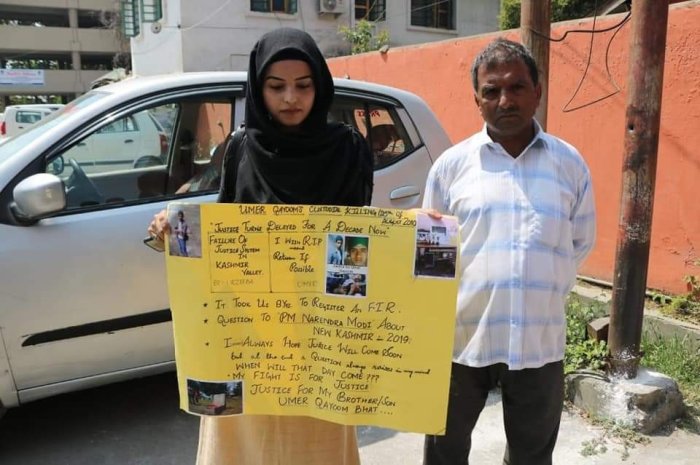 UMER QAYOOM'S CUSTODIAL KILLING (25TH OF AUGUST 2010
"JUSTICE TURNS DELAYED FOR A DECADE NOW"
FAILURE OF
JUSTICE SYSTEM
IN
KASHMIR
VALLEY.
I WISH R.I.P
Return If
Possible
UMER
• IT TOOK US 8YRS TO REGISTER AN F.I.R.
• QUESTION TO PM NARENDRA MODI ABOUT
NEW KASHMIR - 2019.
• I ALWAYS HOPE JUSTICE WILL COME SOON
but at the end a Question always raises in my mind
WHEN WILL THAT DAY COME???
• MY FIGHT IS FOR JUSTICE
JUSTICE FOR MY BROTHER/SON
UMER QAYOOM BHAT....